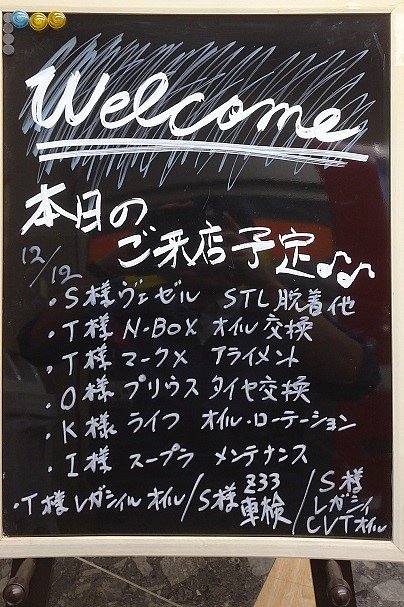 Welcome
本日の
ご来店予定♪♪
12/12
・S様 ヴェゼル STL脱着他
・T様 N-BOX オイル交換
・T様 マークX アライメント
・O様 プリウス タイヤ交換
・K様 ライフ オイル・ローテーション
・I様 スープラ メンテナンス
・T様 レガシィ オイル/S様 Z33 車検/S様 レガシィ CVTオイル